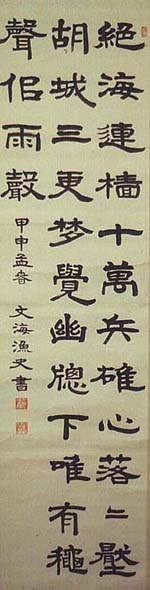 絕海連檣十萬兵雄心落〻壓
胡城三更梦覺幽牕下唯有穐
聲佀雨聲
甲申孟春 文海漁史書